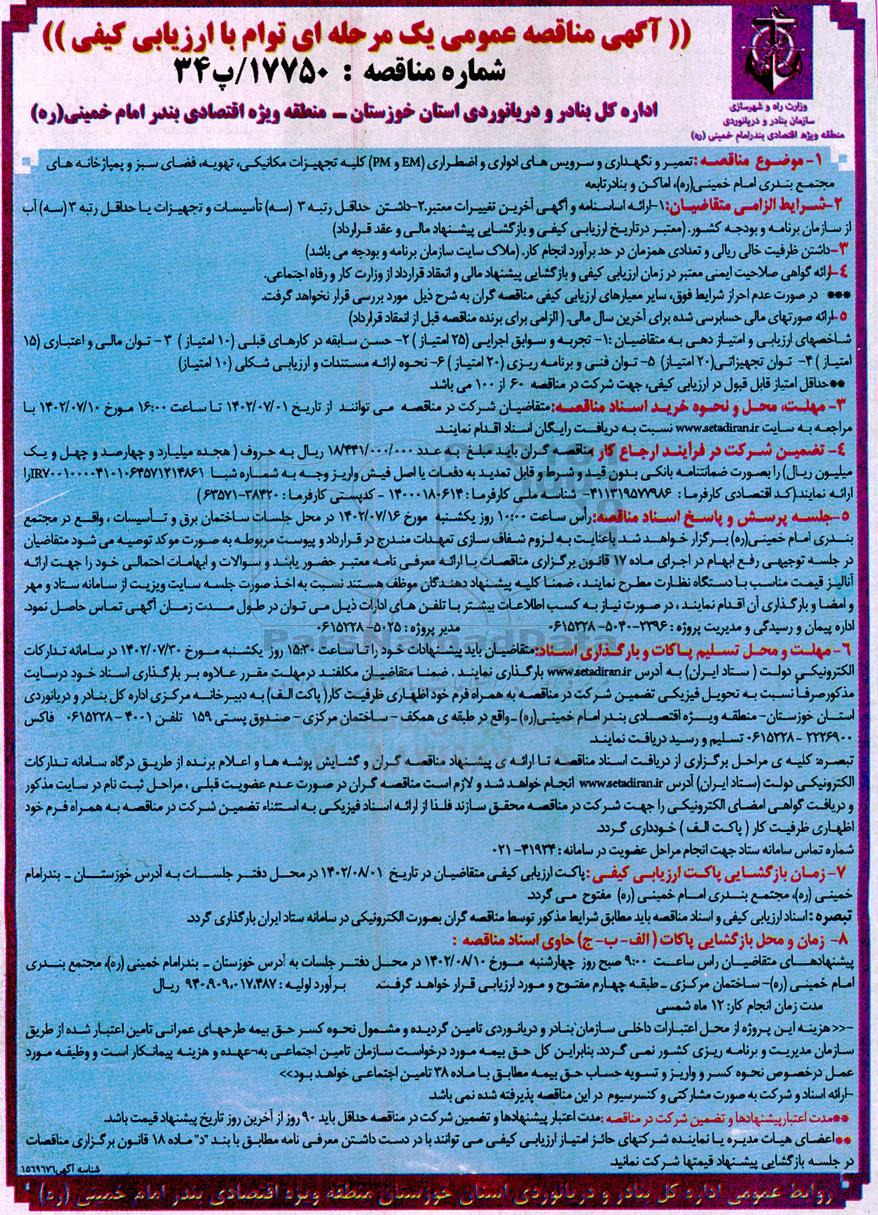 (( آگهی مناقصه عمومی یک مرحله ای توام با ارزیابی کیفی ))
شماره مناقصه : ۱۷۷۵۰/پ۳۴
اداره کل بنادر و دریانوردی استان خوزستان – منطقه ویژه اقتصادی بندر امام خمینی(ره)
وزارت راه و شهرسازی
سازمان بنادر و دریانوردی
منطقه ویژه اقتصادی بندرامام خمینی (ره)
۱- موضوع مناقصه :تعمیر و نگهداری و سرویس های ادواری و اضطراری (EM و PM) کلیه تجهیزات مکانیکی، تهویه، فضای سبز و پمپاژخانه های
مجتمع بندری امام خمینی(ره)، اماکن و بنادرتابعه
۲-شرایط الزامی متقاضیان:۱-ارائه اساسنامه و آگهی آخرین تغییرات معتبر.۲-داشتن حداقل رتبه ۳ (سه) تأسیسات و تجهیزات یا حداقل رتبه ۳ (سه) آب
از سازمان برنامه و بودجه کشور. (معتبر درتاریخ ارزیابی کیفی و بازگشایی پیشنهاد مالی و عقد قرارداد)
۳-داشتن ظرفیت خالی ریالی و تعدادی همزمان در حد برآورد انجام کار. (ملاک سایت سازمان برنامه و بودجه می باشد)
۴-ارائه گواهی صلاحیت ایمنی معتبر در زمان ارزیابی کیفی و بازگشایی پیشنهاد مالی و انعقاد قرارداد از وزارت کار و رفاه اجتماعی.
*** در صورت عدم احراز شرایط فوق، سایر معیارهای ارزیابی کیفی مناقصه گران به شرح ذیل مورد بررسی قرار نخواهد گرفت.
۵-ارائه صورتهای مالی حسابرسی شده برای آخرین سال مالی. ( الزامی برای برنده مناقصه قبل از انعقاد قرارداد)
شاخصهای ارزیابی و امتیاز دهی به متقاضیان :۱- تجربه و سوابق اجرایی (۲۵ امتیاز ) ۲- حسن سابقه در کارهای قبلی (۱۰ امتیاز ) ۳ - توان مالی و اعتباری (۱۵
امتیاز ) ۴- توان تجهیزاتی(۲۰ امتیاز) ۵- توان فنی و برنامه ریزی (۲۰ امتیاز ) ۶- نحوه ارائه مستندات و ارزیابی شکلی (۱۰ امتیاز)
**حداقل امتیاز قابل قبول در ارزیابی کیفی، جهت شرکت در مناقصه ۶۰ از ۱۰۰ می باشد.
۳- مهلت، محل و نحوه خرید اسناد مناقصه:متقاضیان شرکت در مناقصه می توانند از تاریخ ۱۴۰۲/۰۷/۰۱ تا ساعت ۱۶:۰۰ مورخ ۱۴۰۲/۰۷/۱۰ با
مراجعه به سایت www.setadiran.ir نسبت به دریافت رایگان اسناد اقدام نمایند.
۴- تضمین شرکت در فرآیند ارجاع کار مناقصه گران باید مبلغ به عدد ۱۸/۴۴۱/۰۰۰/۰۰۰ ریال به حروف ( هجده میلیارد و چهارصد و چهل و یک
میلیون ریال) را بصورت ضمانتنامه بانکی بدون قید و شرط و قابل تمدید به دفعات یا اصل فیش واریز وجه به شماره شبا IR۷۰۰۱۰۰۰۰۴۱۰۱۰۶۴۵۷۱۲۱۴۸۶۱را
ارائه نمایند(کد اقتصادی کارفرما : ۴۱۱۳۱۹۵۷۷۹۸۶- شناسه ملی کارفرما : ۱۴۰۰۰۱۸۰۶۱۴ - کدپستی کارفرما : ۳۸۴۲۰-۶۳۵۷۱)
۵-جلسه پرسش و پاسخ اسناد مناقصه:راس ساعت ۱۰:۰۰ روز یکشنبه مورخ ۱۴۰۲/۰۷/۱۶ در محل جلسات ساختمان برق و تأسیسات ، واقع در مجتمع
بندری امام خمینی(ره) برگزار خواهد شد. باعنایت به لزوم شفاف سازی تعهدات مندرج در قرارداد و پیوست مربوطه به صورت موکد توصیه می شود متقاضیان
در جلسه توجیهی رفع ابهام در اجرای ماده ۱۷ قانون برگزاری مناقصات با ارائه معرفی نامه معتبر حضور یابند و سوالات و ابهامات احتمالی خود را جهت ارائه
آنالیز قیمت مناسب با دستگاه نظارت مطرح نمایند ، ضمنا کلیه پیشنهاد دهندگان موظف هستند نسبت به اخذ صورت جلسه سایت ویزیت از سامانه ستاد و مهر
و امضا و بارگذاری آن اقدام نمایند ، در صورت نیاز به کسب اطلاعات بیشتر با تلفن های ادارات ذیل می توان در طول مدت زمان آگهی تماس حاصل نمود.
اداره پیمان و رسیدگی و مدیریت پروژه : ۲۳۹۶-۵۰۴۰-۰۶۱۵۲۲۸ مدیر پروژه : ۵۰۲۵-۰۶۱۵۲۲۸
۶- مهلت و محل تسلیم پاکات و بارگذاری اسناد:متقاضیان باید پیشنهادات خود را تا ساعت ۱۵:۳۰ روز یکشنبه مورخ ۱۴۰۲/۰۷/۳۰ در سامانه تدارکات
الکترونیکی دولت ( ستاد ایران) به آدرس www.setadiran.ir بارگذاری نمایند . ضمنا متقاضیان مکلفند درمهلت مقرر علاوه بر بارگذاری اسناد خود درسایت
مذکورصرفاً نسبت به تحویل فیزیکی تضمین شرکت در مناقصه به همراه فرم خود اظهاری ظرفیت کار( پاکت الف) به دبیرخانه مرکزی اداره کل بنادر و دریانوردی
استان خوزستان- منطقه ویژه اقتصادی بندر امام خمینی(ره) –واقع در طبقه ی همکف – ساختمان مرکزی - صندوق پستی ۱۵۹ تلفن ۴۰۰۱ -۰۶۱۵۲۲۸ فاکس
۲۲۲۶۹۰۰ - ۰۶۱۵۲۲۸ تسلیم و رسید دریافت نمایند.
تبصره: کلیه ی مراحل برگزاری از دریافت اسناد مناقصه تا ارائه ی پیشنهاد مناقصه گران و گشایش پوشه ها و اعلام برنده از طریق درگاه سامانه تدارکات
الکترونیکی دولت (ستاد ایران) آدرس www.setadiran.ir انجام خواهد شد و لازم است مناقصه گران در صورت عدم عضویت قبلی ، مراحل ثبت نام در سایت مذکور
و دریافت گواهی امضای الکترونیکی را جهت شرکت در مناقصه محقق سازند فلذا از ارائه اسناد فیزیکی به استثناء تضمین شرکت در مناقصه به همراه فرم خود
اظهاری ظرفیت کار ( پاکت الف ) خودداری گردد.
شماره تماس سامانه ستاد جهت انجام مراحل عضویت در سامانه : ۴۱۹۳۴- ۰۲۱
۷- زمان بازگشایی پاکت ارزیابی کیفی :پاکت ارزیابی کیفی متقاضیان در تاریخ ۱۴۰۲/۰۸/۰۱ در محل دفتر جلسات به آدرس خوزستان – بندرامام
خمینی (ره)، مجتمع بندری امام خمینی (ره) مفتوح می گردد.
تبصره : اسناد ارزیابی کیفی و اسناد مناقصه باید مطابق شرایط مذکور توسط مناقصه گران بصورت الکترونیکی در سامانه ستاد ایران بارگذاری گردد.
۸- زمان و محل بازگشایی پاکات ( الف- ب- ج) حاوی اسناد مناقصه :
پیشنهادهای متقاضیان راس ساعت ۹:۰۰ صبح روز چهارشنبه مورخ ۱۴۰۲/۰۸/۱۰ در محل دفتر جلسات به آدرس خوزستان – بندرامام خمینی (ره)، مجتمع بندری
امام خمینی (ره)- ساختمان مرکزی – طبقه چهارم مفتوح و مورد ارزیابی قرار خواهد گرفت. برآورد اولیه : ۹۴۰،۹۰۹،۰۱۷،۴۸۷ ریال
مدت زمان انجام کار: ۱۲ ماه شمسی
-<<هزینه این پروژه از محل اعتبارات داخلی سازمان بنادر و دریانوردی تامین گردیده و مشمول نحوه کسر حق بیمه طرحهای عمرانی تامین اعتبار شده از طریق
سازمان مدیریت و برنامه ریزی کشور نمی گردد. بنابراین کل حق بیمه مورد درخواست سازمان تامین اجتماعی به-عهده و هزینه پیمانکار است و وظیفه مورد
عمل درخصوص نحوه کسر و واریز و تسویه حساب حق بیمه مطابق با ماده ۳۸ تامین اجتماعی خواهد بود>>
-ارائه اسناد و شرکت به صورت مشارکتی و کنسرسیوم در این مناقصه پذیرفته شده نمی باشد.
**مدت اعتبارپیشنهادها و تضمین شرکت در مناقصه :مدت اعتبار پیشنهادها و تضمین شرکت در مناقصه حداقل باید ۹۰ روز از آخرین روز تاریخ پیشنهاد قیمت باشد.
**اعضای هیات مدیره یا نماینده شرکتهای حائز امتیاز ارزیابی کیفی می توانند با در دست داشتن معرفی نامه مطابق با بند "د" ماده ۱۸ قانون برگزاری مناقصات
در جلسه بازگشایی پیشنهاد قیمتها شرکت نمایند.
شناسه آگهی۱۵۶۹۶۷۶
روابط عمومی اداره کل بنادر و دریانوردی استان خوزستان منطقه ویژه اقتصادی بندر امام خمینی (ره)